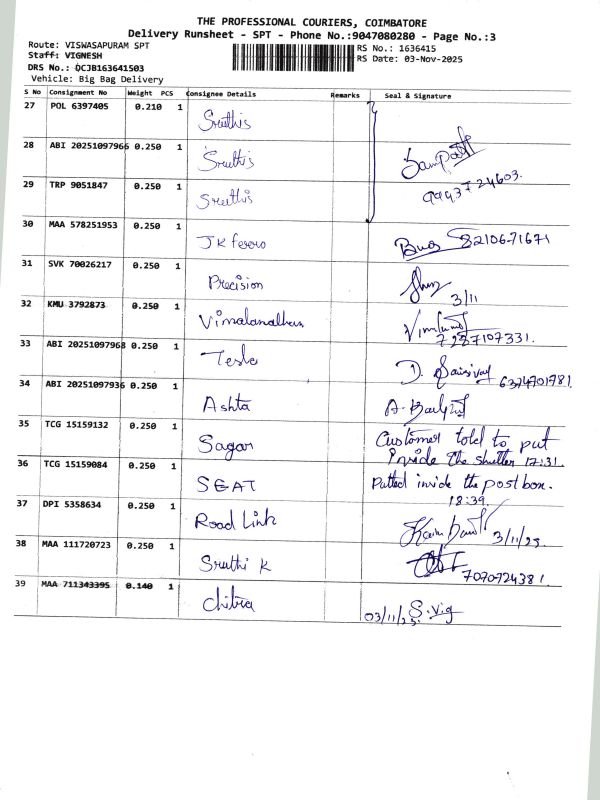 THE PROFESSIONAL COURIERS, COIMBATORE
Delivery Runsheet - SPT - Phone No.:9047080280 - Page No.:3
Route: VISWASAPURAM SPT
Staff: VIGNESH
DRS No.: DCJB163641503
Vehicle: Big Bag Delivery
RS No.: 1636415
RS Date: 03-Nov-2025
S No Consignment No Weight PCS Consignee Details Remarks Seal & Signature
27 POL 6397405 0.210 1 Sruthis
28 ABI 20251097966 0.250 1 Sruthis
29 TRP 9051847 0.250 1 Sruthis
30 MAA 578251953 0.250 1 JK fesoro
31 SVK 70026217 0.250 1 Precision 3/11
32 KMU 3792873 0.250 1 Vimalanathan
33 ABI 20251097968 0.250 1 Tesla
34 ABI 20251097936 0.250 1 Ashta 6374701781
35 TCG 15159132 0.250 1 Sagar Customer told to put
Inside The shutter 17:31.
36 TCG 15159084 0.250 1 SEAT Putted inside the post box.
18:39
37 DPI 5358634 0.250 1 Road Link 3/11/25
38 MAA 111720723 0.250 1 Sruthi K
39 MAA 711343395 0.140 1 Chitra 03/11/25 S.Vig